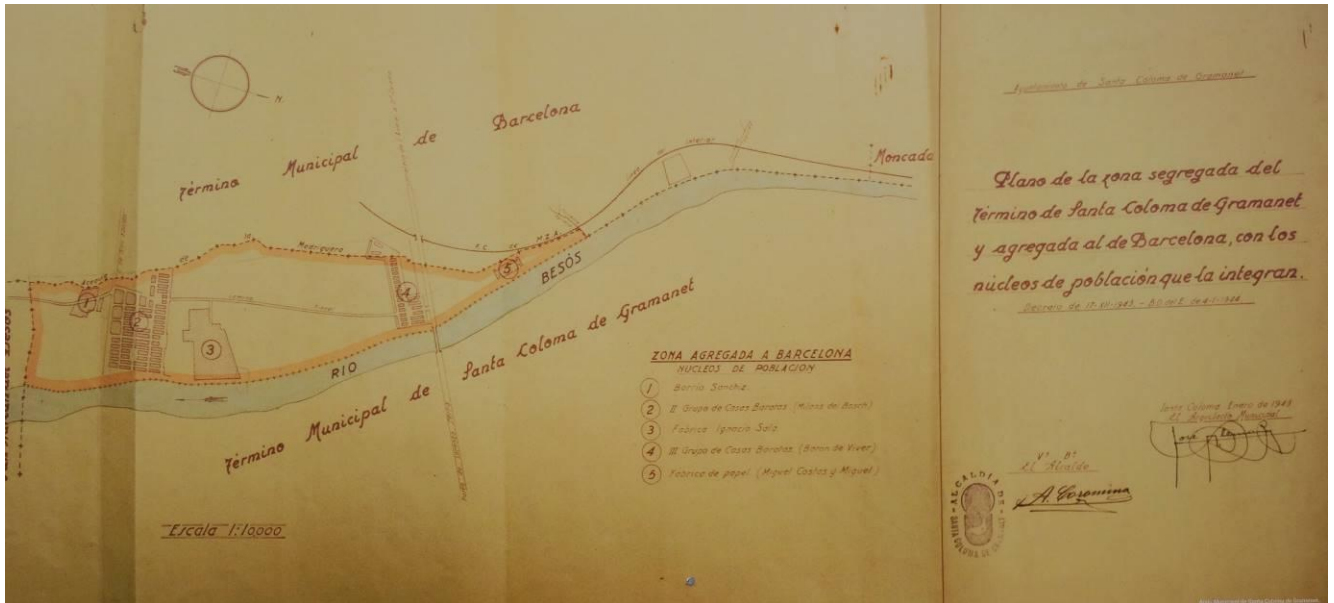 N.
Término Municipal de Barcelona
Moncada
F.C. de M.Z.A.
Acequia
Madriguera
1
2
3
4
5
RIO BESÓS
Término Municipal de Santa Coloma de Gramanet
ZONA AGREGADA A BARCELONA
NUCLEOS DE POBLACION
1 Barrio Sanchiz
2 II Grupo de Casas Baratas. (Milans del Bosch)
3 Fabrica Ignacio Sala
4 III Grupo de Casas Baratas. (Baron de Viver)
5 Fabrica de papel (Miguel Costas y Miguel)
Escala 1:10,000
Ayuntamiento de Santa Coloma de Gramanet
Plano de la zona segregada del
Término de Santa Coloma de Gramanet
y agregada al de Barcelona, con los
núcleos de población que la integran.
Santa Coloma Enero de
El Arquitecto Municipal
Vº Bº
El Alcalde
A. Coromina
ALCALDIA DE
SANTA COLOMA DE GRAMANET